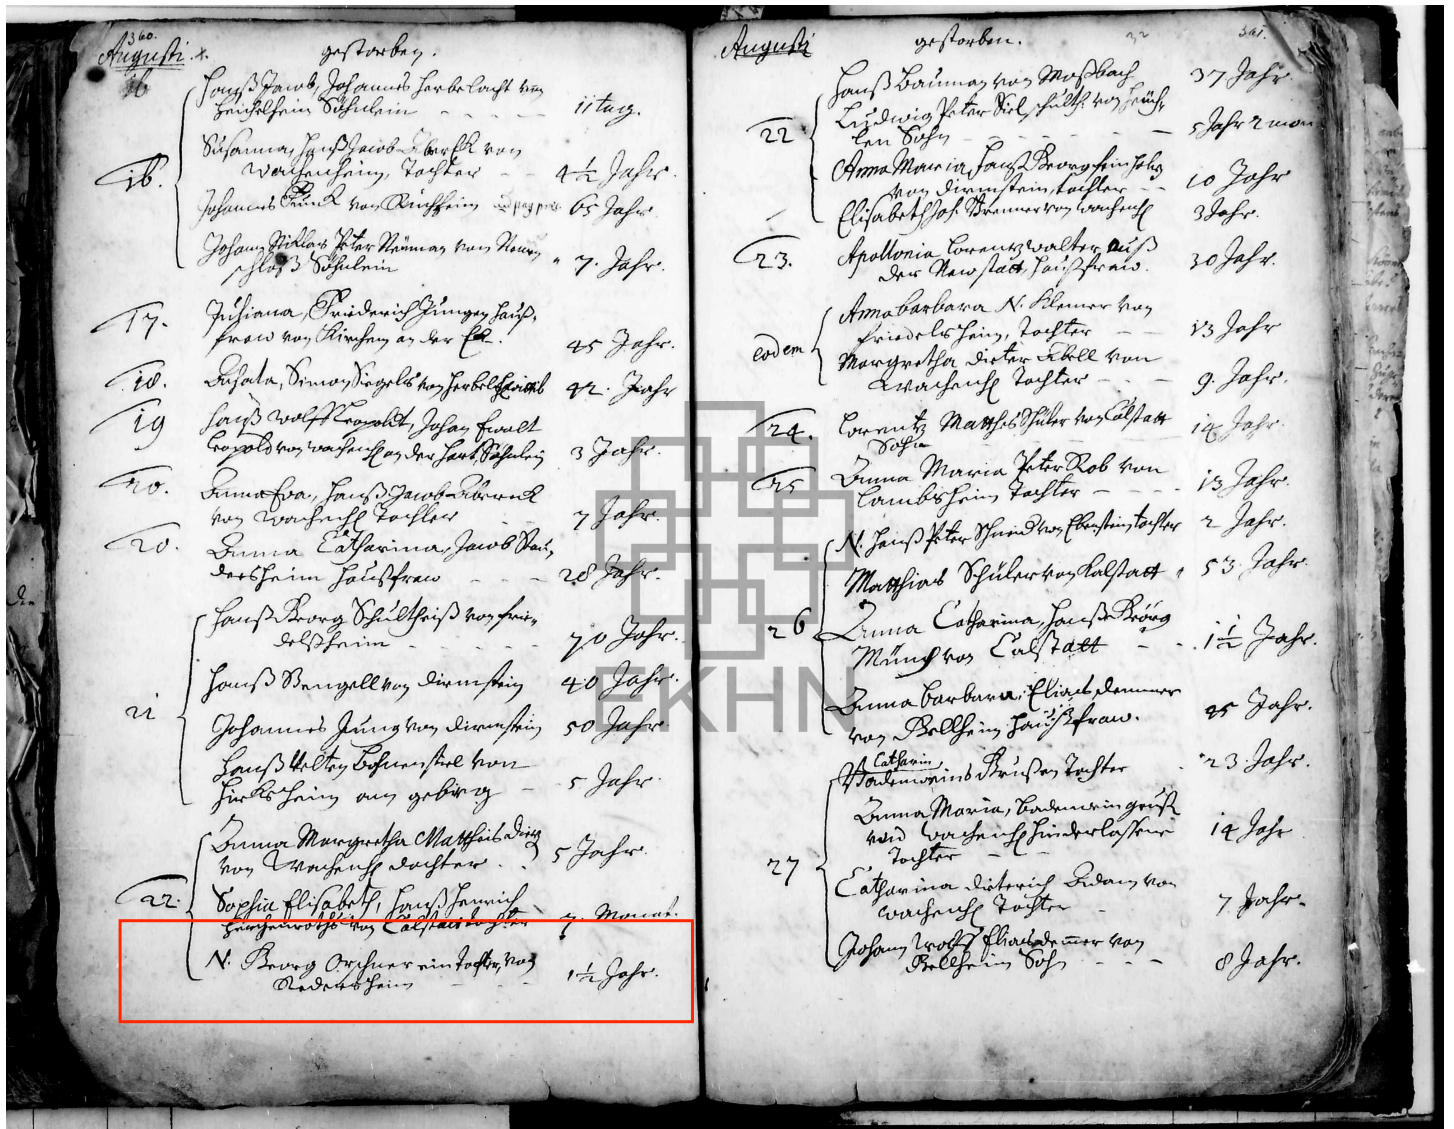 360.
Augusti
gestorben.
16
Hanß Jacob, Johannes Herbelacht von
Heuchelheim Söhnlein
11 tag.
16.
Susanna, Hanß Jacob von
Wachenheim, Tochter
4 1/2 Jahr.
Johannes von Kirchheim
65 Jahr.
Johann Niklas Peter Neuman von Neuen
schloß Söhnlein
7. Jahr.
17.
Juliana, Friederich Jungen hauß-
fraw von Kirchen an der Eck.
45 Jahr.
18.
Agata, Simon Siegels von Herbelsheim
42. Jahr
19
Hanß Wolff Leopoldt, Johan Ewalt
Leopold von Wachenh. an der Hart, Söhnlein
3 Jahr.
20.
Anna Eva, Hanß Jacob
von Wachenh. Tochter
7 Jahr.
20.
Anna Catharina, Jacob Bau-
dersheim Haußfraw
28 Jahr.
21
Hanß Georg Schultheiß von Frie-
delßheim
70 Jahr.
Hanß Stengell von Dirmstein
40 Jahr.
Johannes Jung von Dirmstein
50 Jahr.
Hanß Velten Bohnenstiel von
am gebirg
5 Jahr.
22.
Anna Margretha Mattheis Dietz
von Wachenh. dochter.
5 Jahr.
Sophia Elisabeth, Hanß Henrich
von Calstatt tochter
7. Monat.
N. Georg Orchner ein Tochter, von
Redersheim
1 1/2 Jahr.
Augusti
gestorben.
32
361.
22
Hanß Bauman von Moßbach
37 Jahr
Ludwig Peter Siel schulth. von Heuch-
len Sohn
5 Jahr 2 mon
Anna Maria, Hanß Georg
von Dirmstein, tochter
10 Jahr
Elisabeth Joh. Brenner von Wachenh.
3 Jahr.
23.
Apollonia Lorentz Walter auß
der Newstatt, haußfraw.
30 Jahr.
eodem
Anna Barbara N. Klemer von
Friedelsheim, Tochter
13 Jahr
Margretha Dieter Abell von
Wachenh. Tochter
9. Jahr.
24.
Lorentz Matthes Schüler von Calstatt
Sohn
14 Jahr.
25
Anna Maria Peter Rob von
Lambsheim Tochter
13 Jahr.
26
N. Hanß Peter Schneid von Ebenstein tochter
2 Jahr.
Matthias Schüler von Kalstatt
53 Jahr.
Anna Catharina, Hanß Geörg
Münch von Calstatt
1 1/2 Jahr.
Anna Barbara, Elias Demmer
von Bellheim haußfraw.
45 Jahr.
27
Catharin
Tochter
23. Jahr.
Anna Maria,
von Wachenh. hinderlassene
Tochter
14 Jahr
Catharina Dieterich Adam von
Wachenh. Tochter
7 Jahr.
Johann Wolff Elias Demer von
Bellheim Sohn
8 Jahr.
EKHN